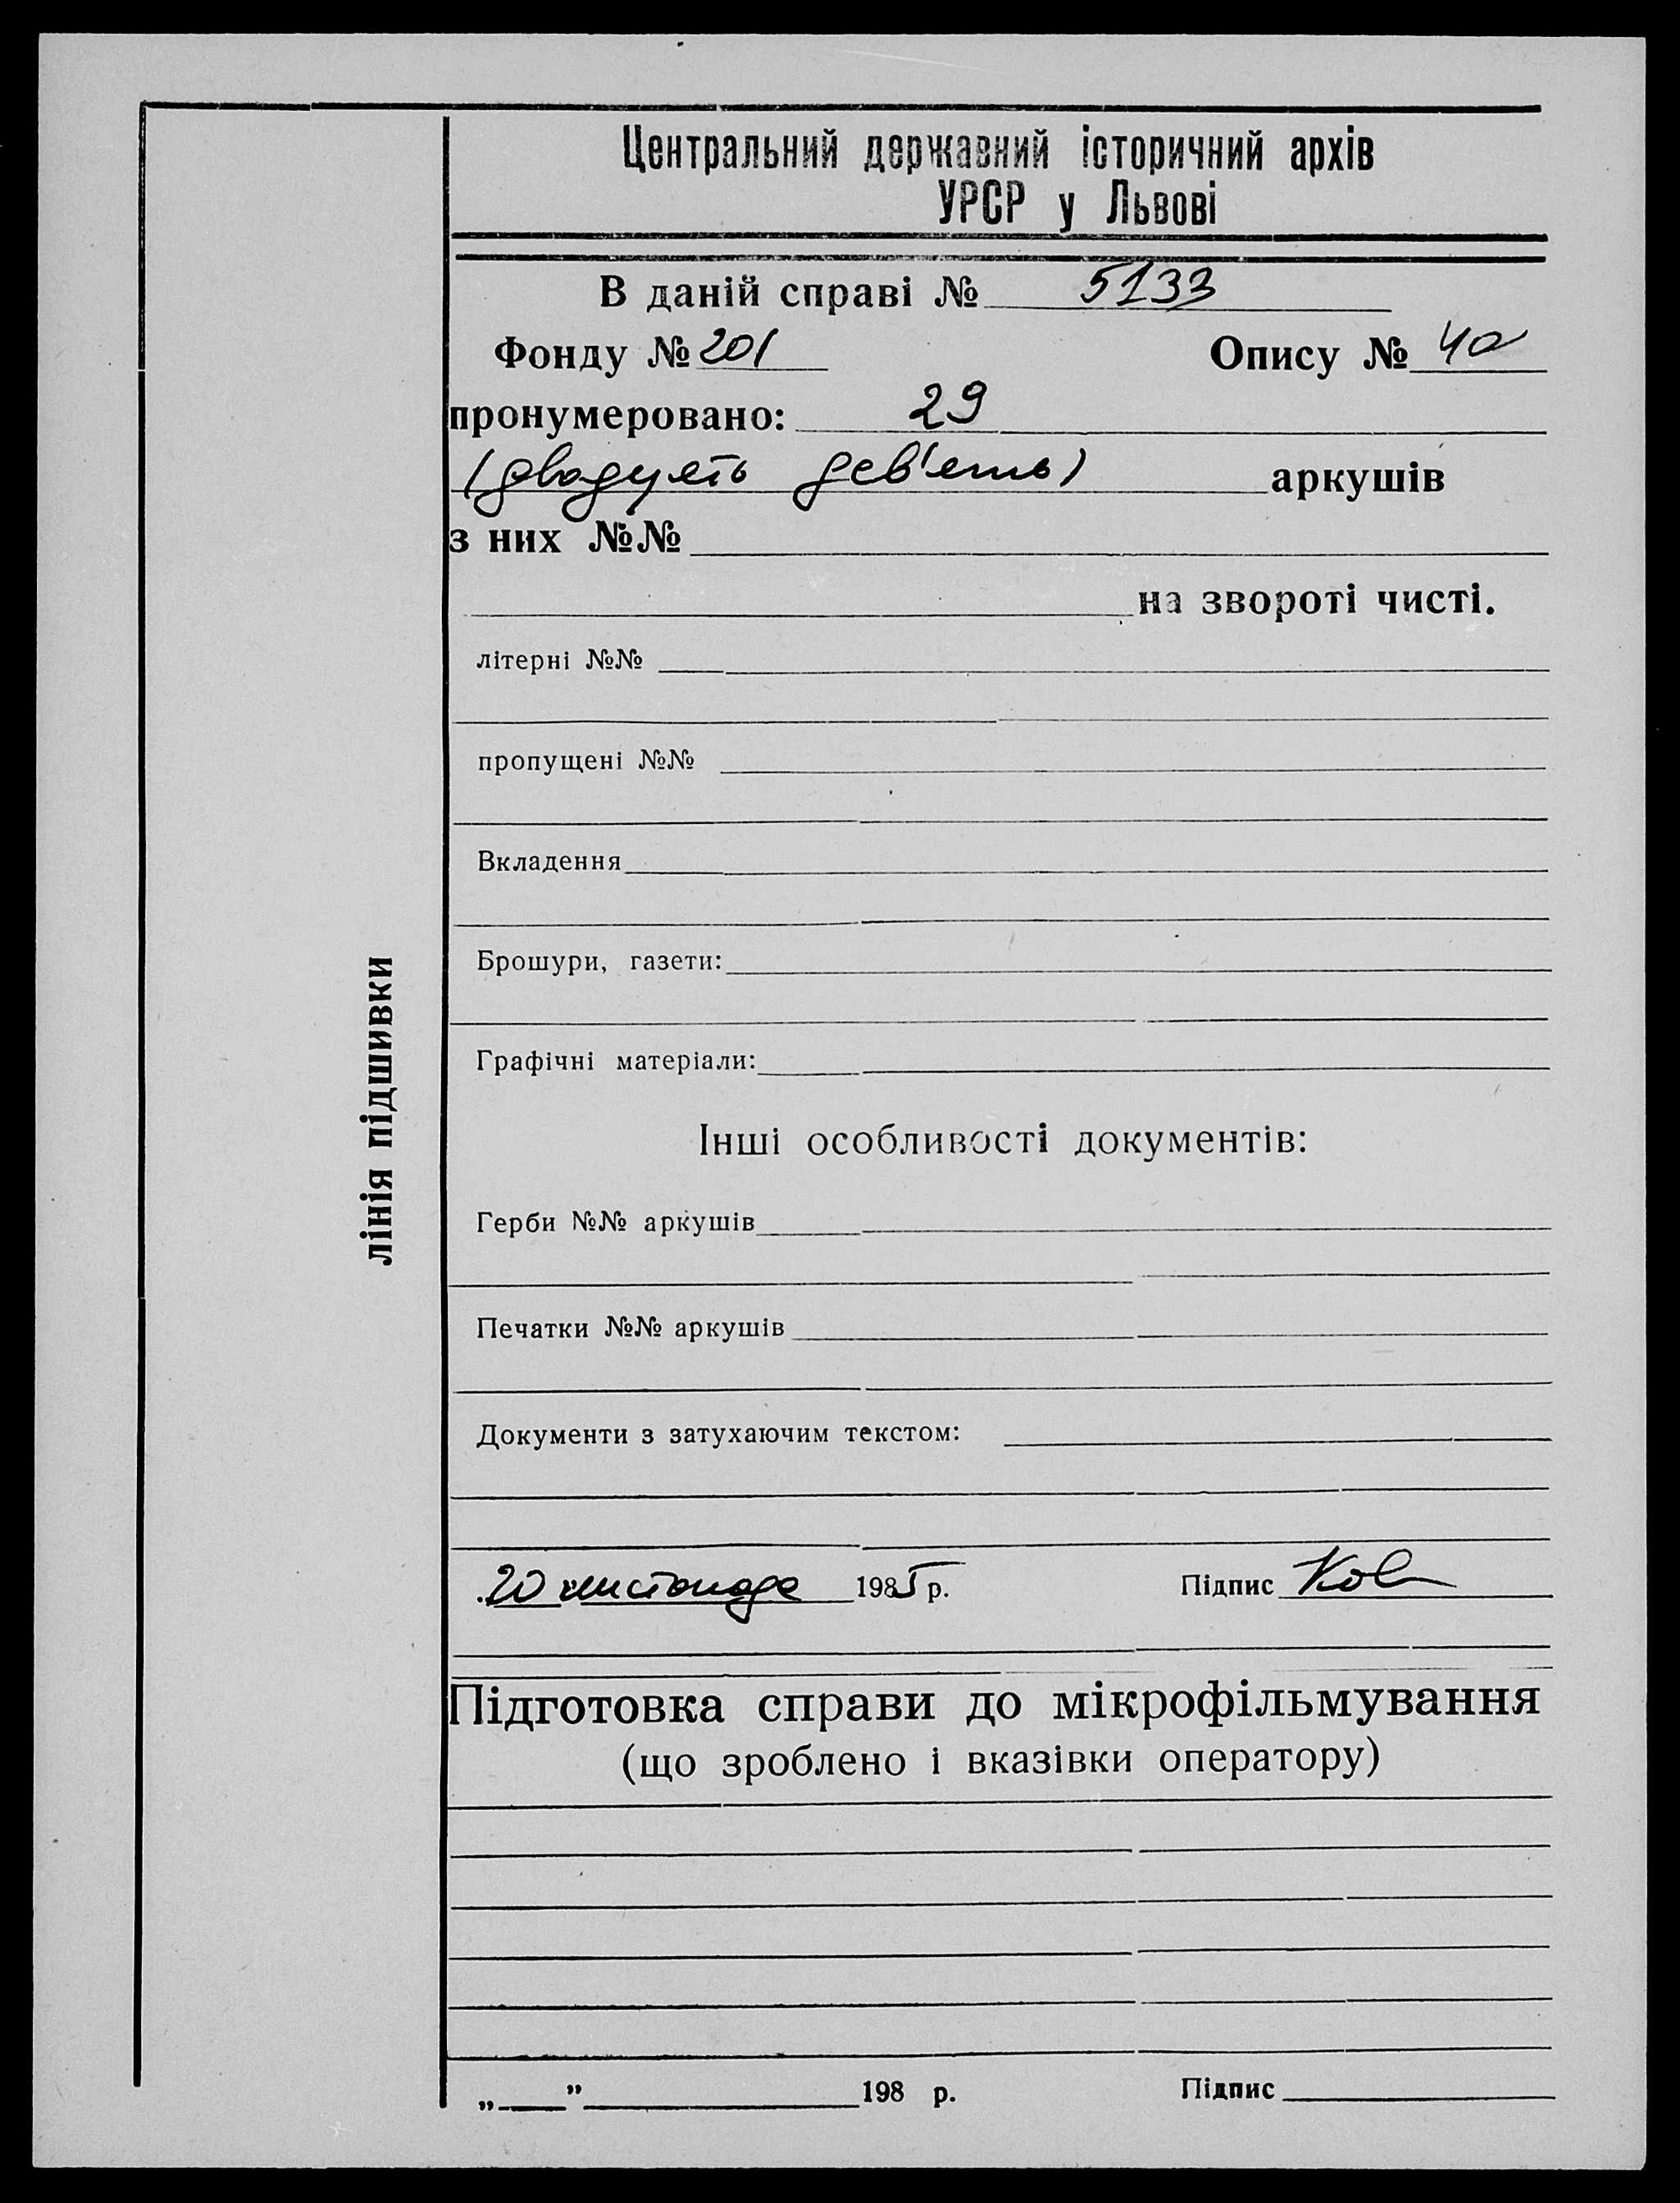 Центральний державний історичний архів
УРСР у Львові
В даній справі № 5133
Фонду № 201 Опису № 4а
пронумеровано: 29
(двадцять дев'ять) аркушів
з них №№
на звороті чисті.
літерні №№
пропущені №№
Вкладення
Брошури, газети:
Графічні матеріали:
Інші особливості документів:
Герби №№ аркушів
Печатки №№ аркушів
Документи з затухаючим текстом:
20 листопада 1985 р. Підпис
Підготовка справи до мікрофільмування
(що зроблено і вказівки оператору)
„ ” 198 р. Підпис
лінія підшивки